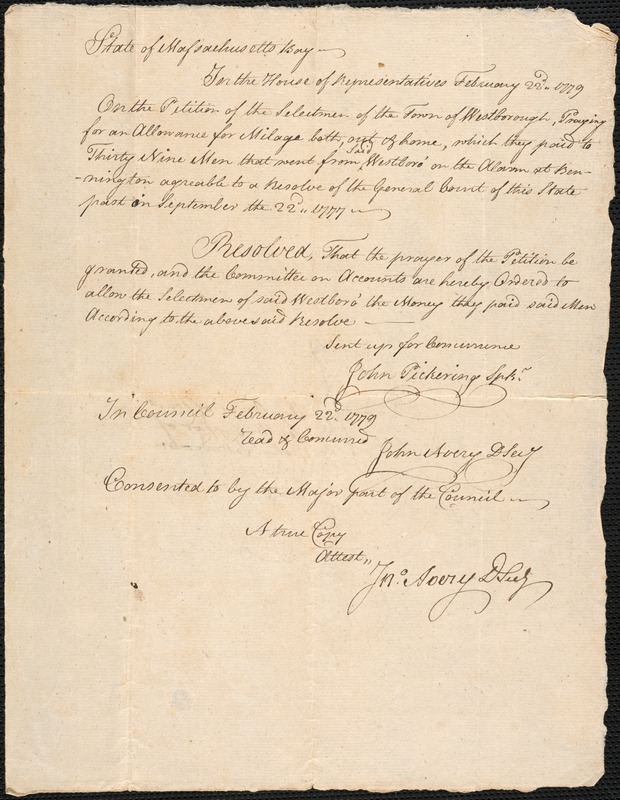 State of Massachusetts Bay
In the House of Representatives February 22d.. 1779
On the Petition of the Selectmen of the Town of Westborough, Praying
for an Allowance for Milage both, out & home, which they paid to
Thirty Nine Men that went from said Westboro' on the Alarm at Ben-
-nington agreable to a Resolve of the General Court of this State
past in September the 22d.. 1777
Resolved, That the prayer of the Petition be
granted, and the Committee on Accounts are hereby Ordered to
allow the Selectmen of said Westboro' the Money they paid said Men
According to the abovesaid Resolve
Sent up for Concurrence
John Pickering Spkr.
In Council February 22d. 1779
Read & Concurred
John Avery D Secy
Consented to by the Major part of the Council
A true Copy
Attest,,
Jno. Avery D Secy